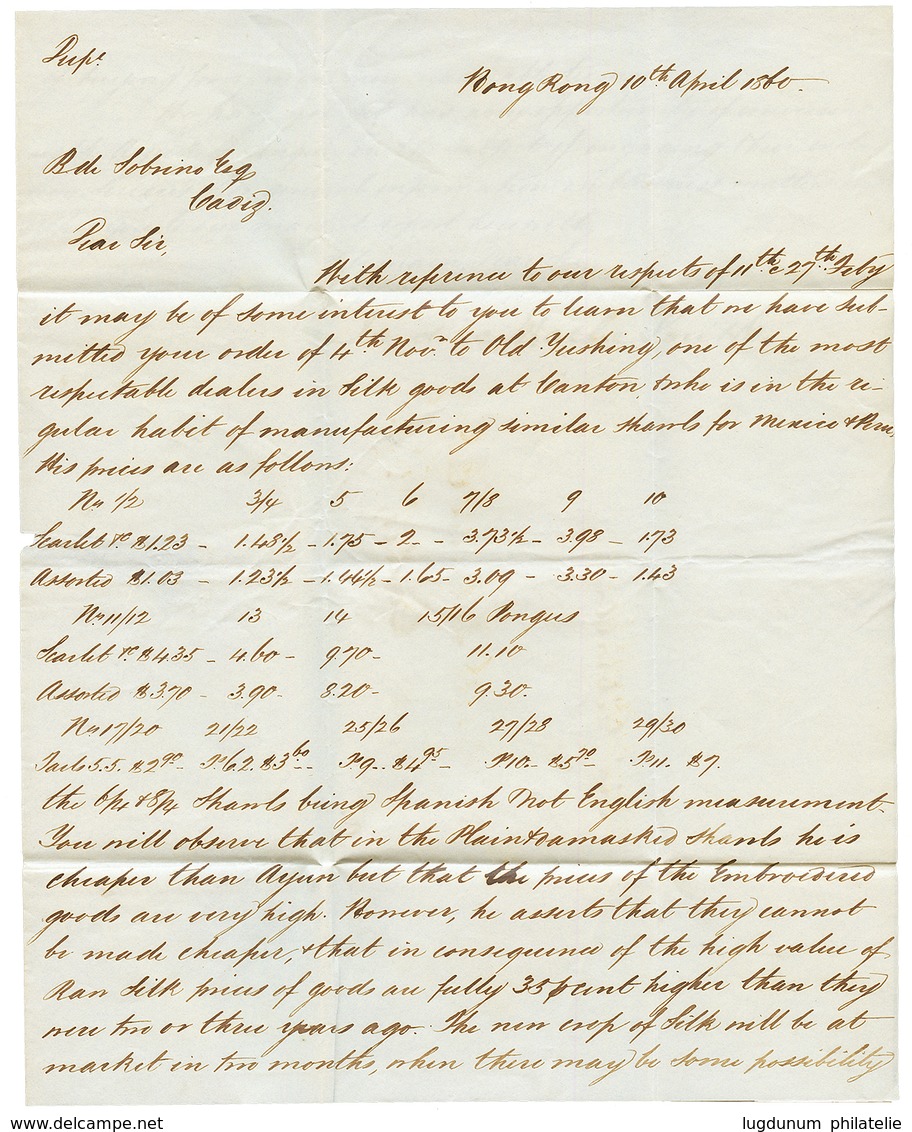 Hong Kong 10th April 1860.
B de Sobrino Esq
Cadiz.
Dear Sir,
With reference to our respects of 11th & 27th Feby
it may be of some interest to you to learn that we have sub-
mitted your order of 4th Novr to Old Yushing, one of the most
respectable dealers in Silk goods at Canton, & who is in the re-
gular habit of manufacturing similar shawls for Mexico & Peru
His prices are as follows:
No 1/2 3/4 5 6 7/8 9 10
Scarlet &c $1.23 - 1.48½ - 1.75 - 2 - - 3.73½ - 3.98 - 1.73
Assorted $1.03 - 1.23½ - 1.44½ - 1.65 - 3.09 - 3.30 - 1.43
No 11/12 13 14 15/16 Ponges
Scarlet &c $4.35 - 4.60 - 9.70 - 11.10
Assorted $3.70 - 3.90 - 8.20 - 9.30.
No 17/20 21/22 25/26 27/28 29/30
Taels 5.5. $2.90 - 6.2. $3.60 - 9 - $4.95 10 - $5.70 11. $7.
the 6/4 & 8/4 Shawls being Spanish not English measurement
You will observe that in the Plain & damasked shawls he is
cheaper than Ayun but that the prices of the Embroidered
goods are very high. However, he asserts that they cannot
be made cheaper, & that in consequence of the high value of
Raw Silk prices of goods are fully 35 pcent higher than they
were two or three years ago. The new crop of Silk will be at
market in two months, when there may be some possibility
www.delcampe.net
lugdunum philatelie